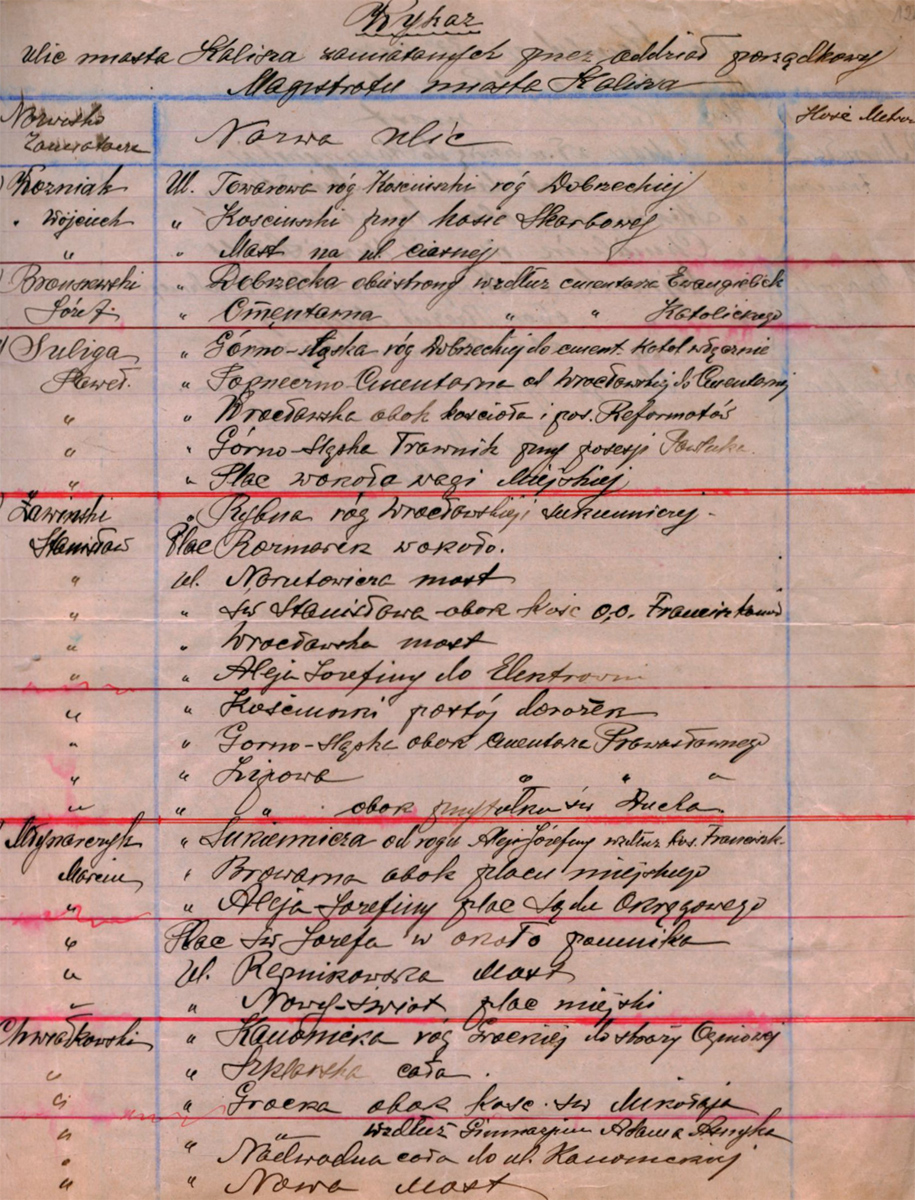 Wykaz
ulic miasta Kalisza zamiatanych przez oddział porządkowy
Magistratu miasta Kalisza
Nazwisko Zamiatacza Nazwa ulic Ilość Metrów
Woźniak Ul. Towarowa róg Kościuszki róg Dobrzeckiej
" Wojciech " Kościuszki przy kasie Skarbowej
" " Most na ul. ciasnej
" Dobrzecka obie strony wzdłuż cmentarza Ewangielick
Józef " Cmentarna " " Katolickego
Suliga " Górno-śląska róg Dobrzeckiej do cment. Katol włącznie
Paweł. " Poprzeczno-Cmentarna od Wrocławskiej do Cmentarnej
" " Wrocławska obok kościoła i pos. Reformatów
" " Górno-Sląska Trawnik przy posesji
" " Plac wokoła wagi Miejskiej
Zawinski " Rybna róg Wrocławskiej i Sukienniczej -
Stanisław Plac Rozmarek wokoło.
" ul. Narutowicza most
" " św Stanisława obok kośc o,o. Franciszkanów
" " Wrocławska most
" " Aleja Jozefiny do Elektrowni
" " Kościuszki postój dorożek
" " Gorno-Sląska obok Cmentarza Prawosławnego
" " Lipowa " " "
" " " obok przytułku św Ducha
Młynarczyk " Sukiennicza od rogu Aleji Józefiny wzdłuż kos. Franciszk.
Marcin " Browarna obok placu miejskiego
" " Aleja Jozefiny plac Sądu Okręgowego
" Plac św Jozefa w około pomnika
" Ul. Repnikowska Most
" " Nowy-Świat plac miejski
Chwiałkowski " Kanonicka róg Grockiej do straży Ogniowej
" " Szklarska cała.
" " Grocka obok kosc. św Mikołaja
" " " wzdłuż Gimnazjum Adama Asnyka
" " Nadwodna cała do ul. Kanonickiej
" " Nowa Most